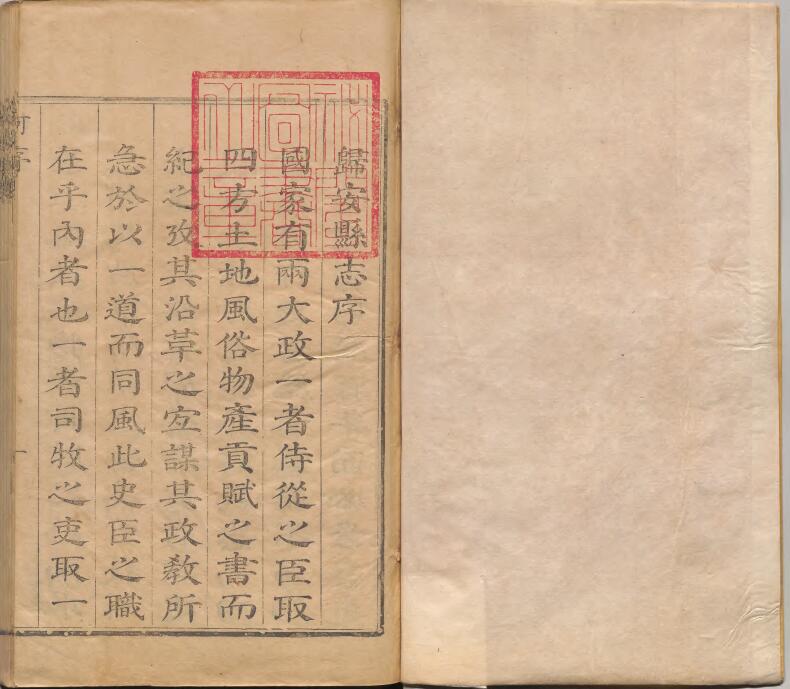 歸安縣志序
國家有兩大政一者侍從之臣取
四方土地風俗物產貢賦之書而
紀之攷其沿革之宜謀其政教所
急於以一道而同風此史臣之職
在乎內者也一者司牧之吏取一